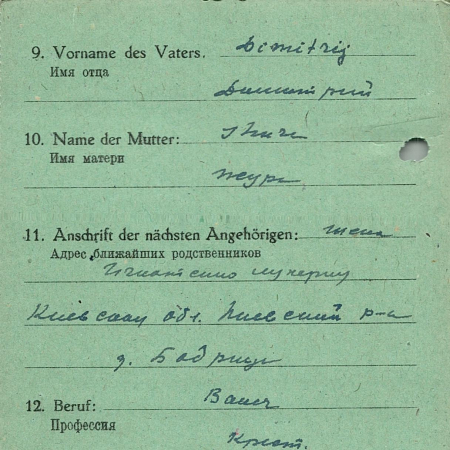 9. Vorname des Vaters. Dimitrij
Имя отца
Дмитрий
10. Name der Mutter:
Имя матери
11. Anschrift der nächsten Angehörigen: жена
Адрес ближайших родственников
Киевская обл. Киевский р-н
д. Бодрищи
12. Beruf: Bauer
Профессия
Крест.